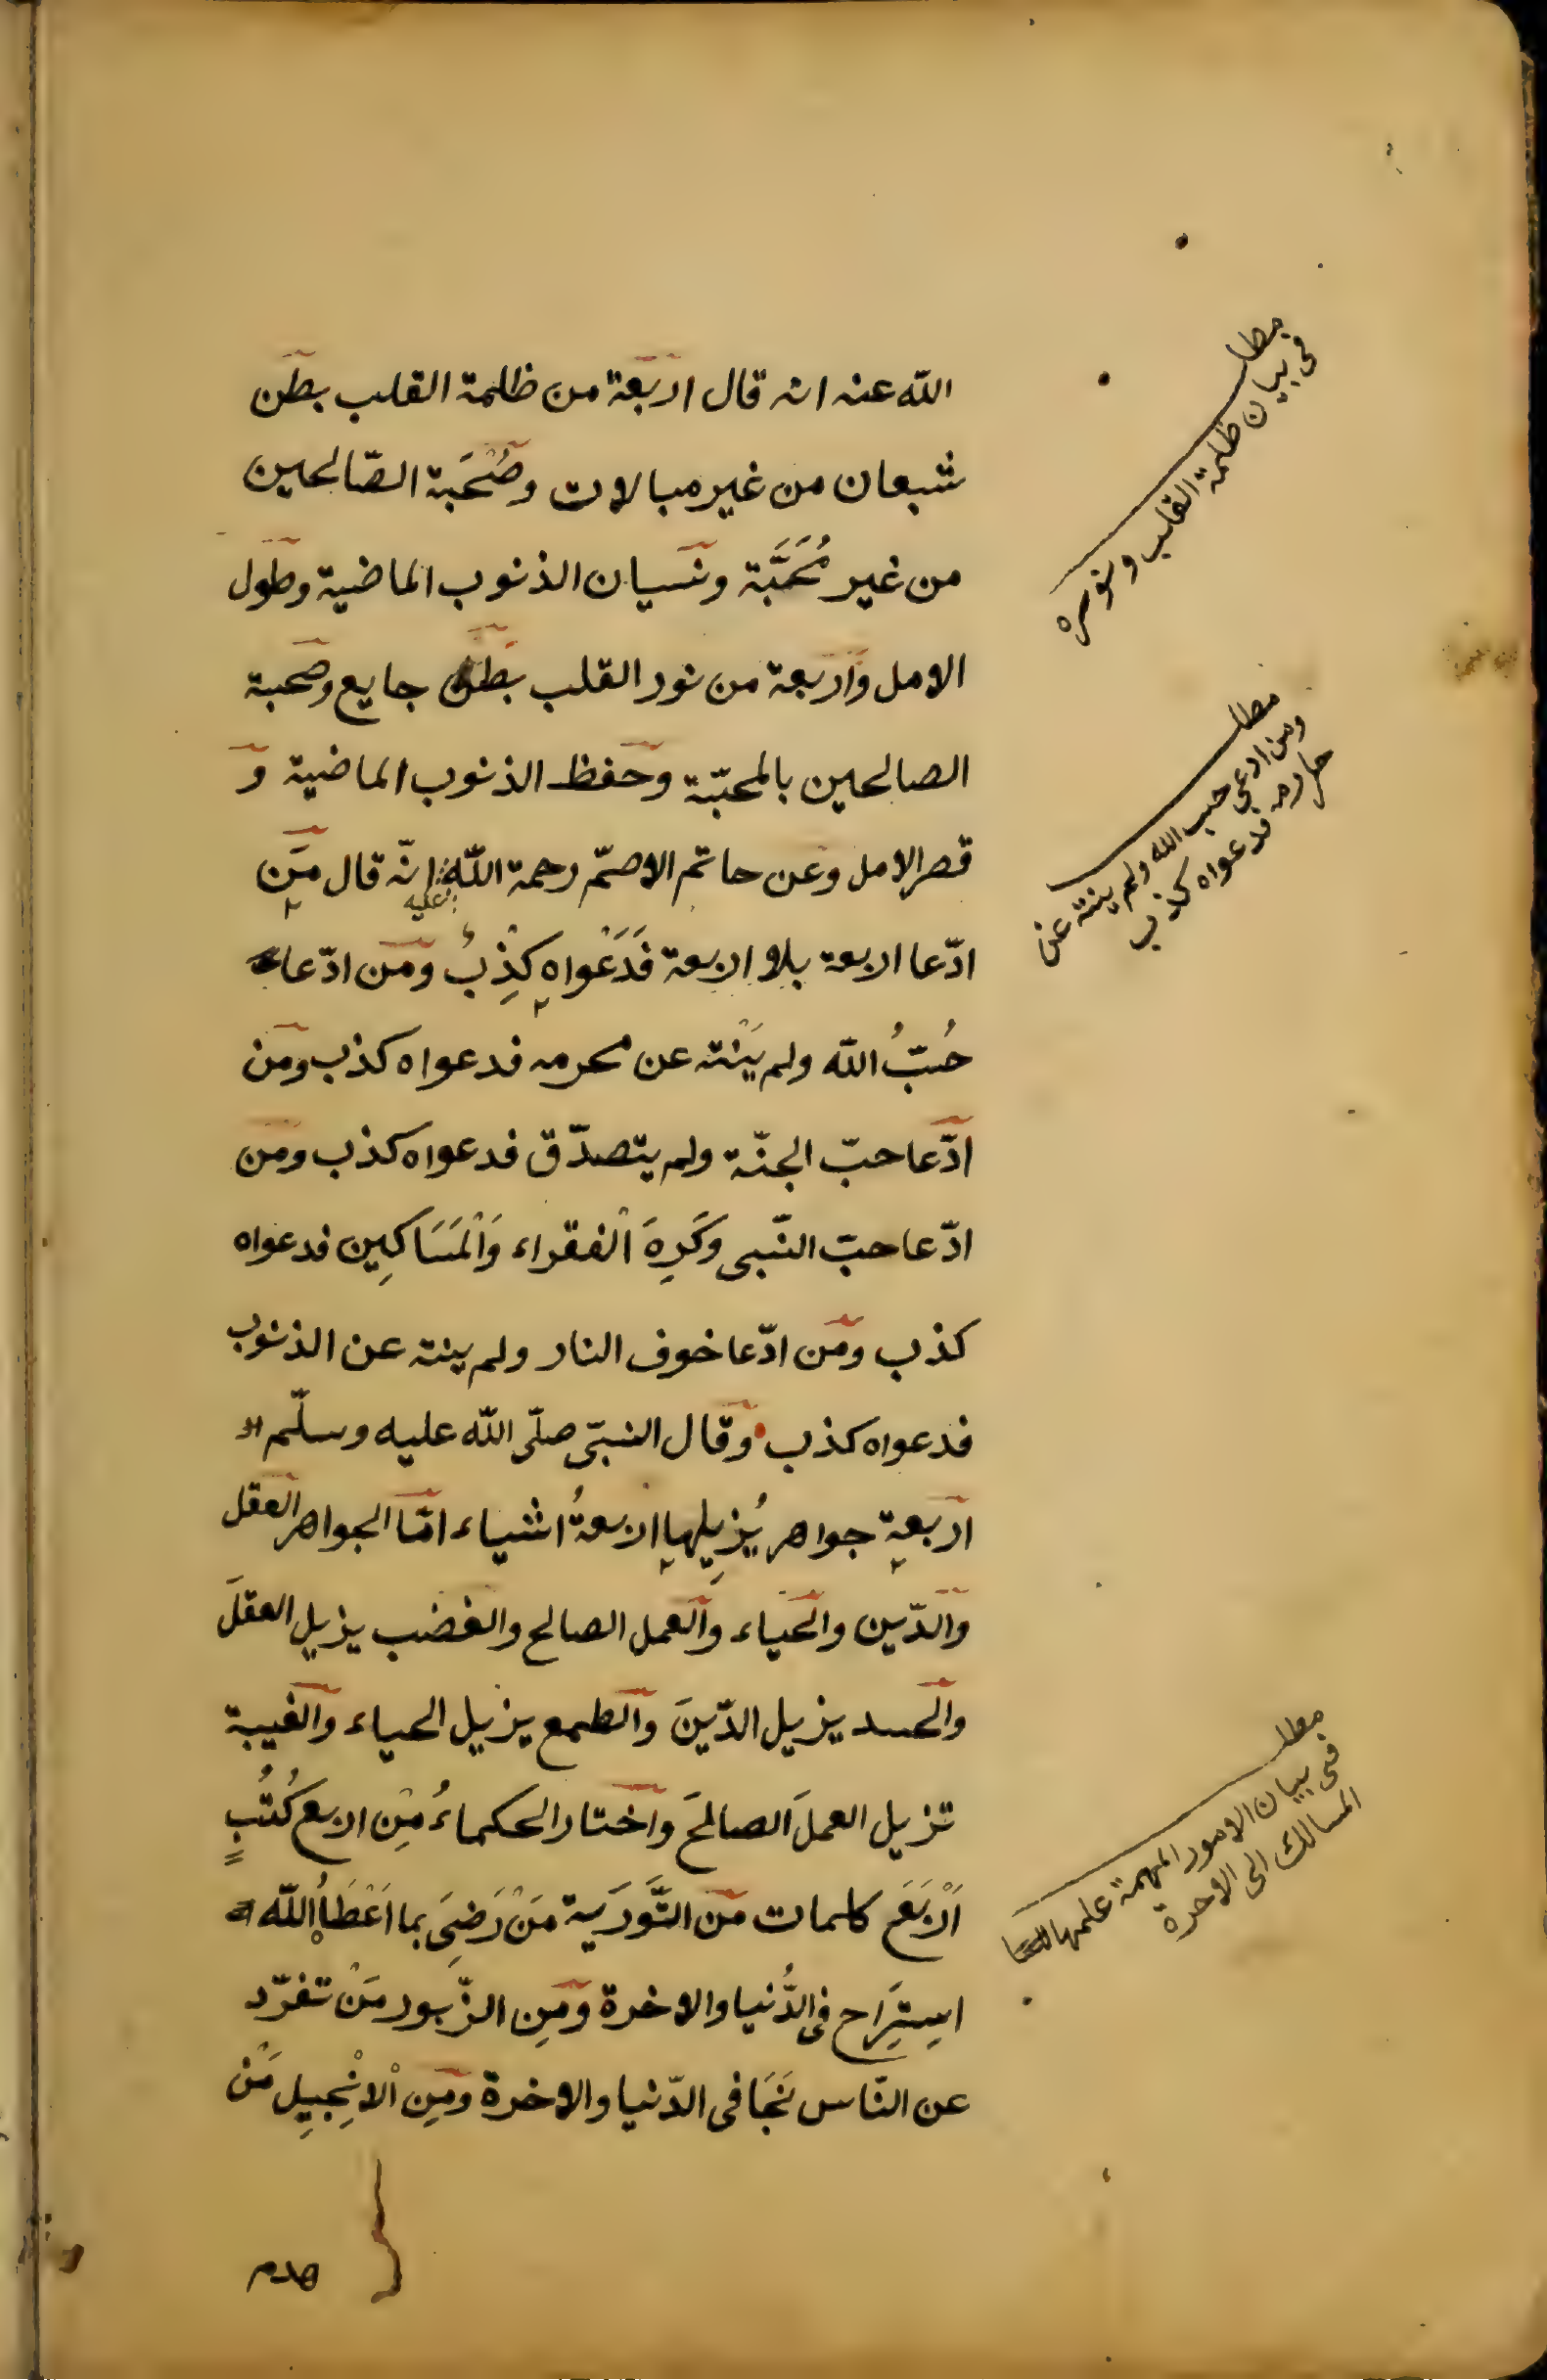 الله عنه انه قال اربعة من ظلمة القلب بطن
شبعان من غير مبالات وصُحْبَة الصّالحين
من غير مُحَبَّة ونسيان الذنوب الماضية وطول
الامل واربعة من نور القلب بطن جايع وصحبة
الصالحين بالمحبّة وحفظ الذنوب الماضية و
قصر الامل وعن حاتم الاصمّ رحمة اللّه عليه انّه قال مَن
ادّعا اربعة بلا اربعة فَدَعْواه كِذْبُ ومن ادّعا
حُبُّ اللّه ولم يَنْته عن محرمه فدعواه كذب ومن
ادّعا حبّ الجنّة ولم يتصدّق فدعواه كذب ومن
ادّعا حبّ النّبى وَكَرِهَ الْفقراء وَالْمَسَاكِين فدعواه
كذب ومن ادّعا خوف النار ولم ينته عن الذنوب
فدعواه كذب وقال النبىّ صلّى اللّه عليه وسلّم
اربعة جواهر يُزِيلها اربعةُ اشياء امّا الجواهر العقل
والدّين والحياء والعمل الصالح والغضب يزيل العقلَ
والحسد يزيل الدّينَ والطمع يزيل الحياء والغيبة
تزيل العملَ الصالحَ واختار الحكماءُ مِن اربع كُتُبٍ
اَرْبَعَ كلمات من التَّوَرَية مَنْ رَضِىَ بما اَعْطَاُ اللّه
استَِرَاح فى الدُّنيا والاخرة ومِن الزّبور مَنْ تفرّد
عن النّاس نَجَا فى الدّنيا والاخرة ومِن الْاِنْجِيلِ مَن
هدم
مطلب
فى بيان ظلمة القلب ونوره
مطلب
ومن ادعى حب الله ولم ينته عن
محارمه فدعواه كذب
مطلب
فى بيان الامور المهمة علمها
المسالك الى الاخرة